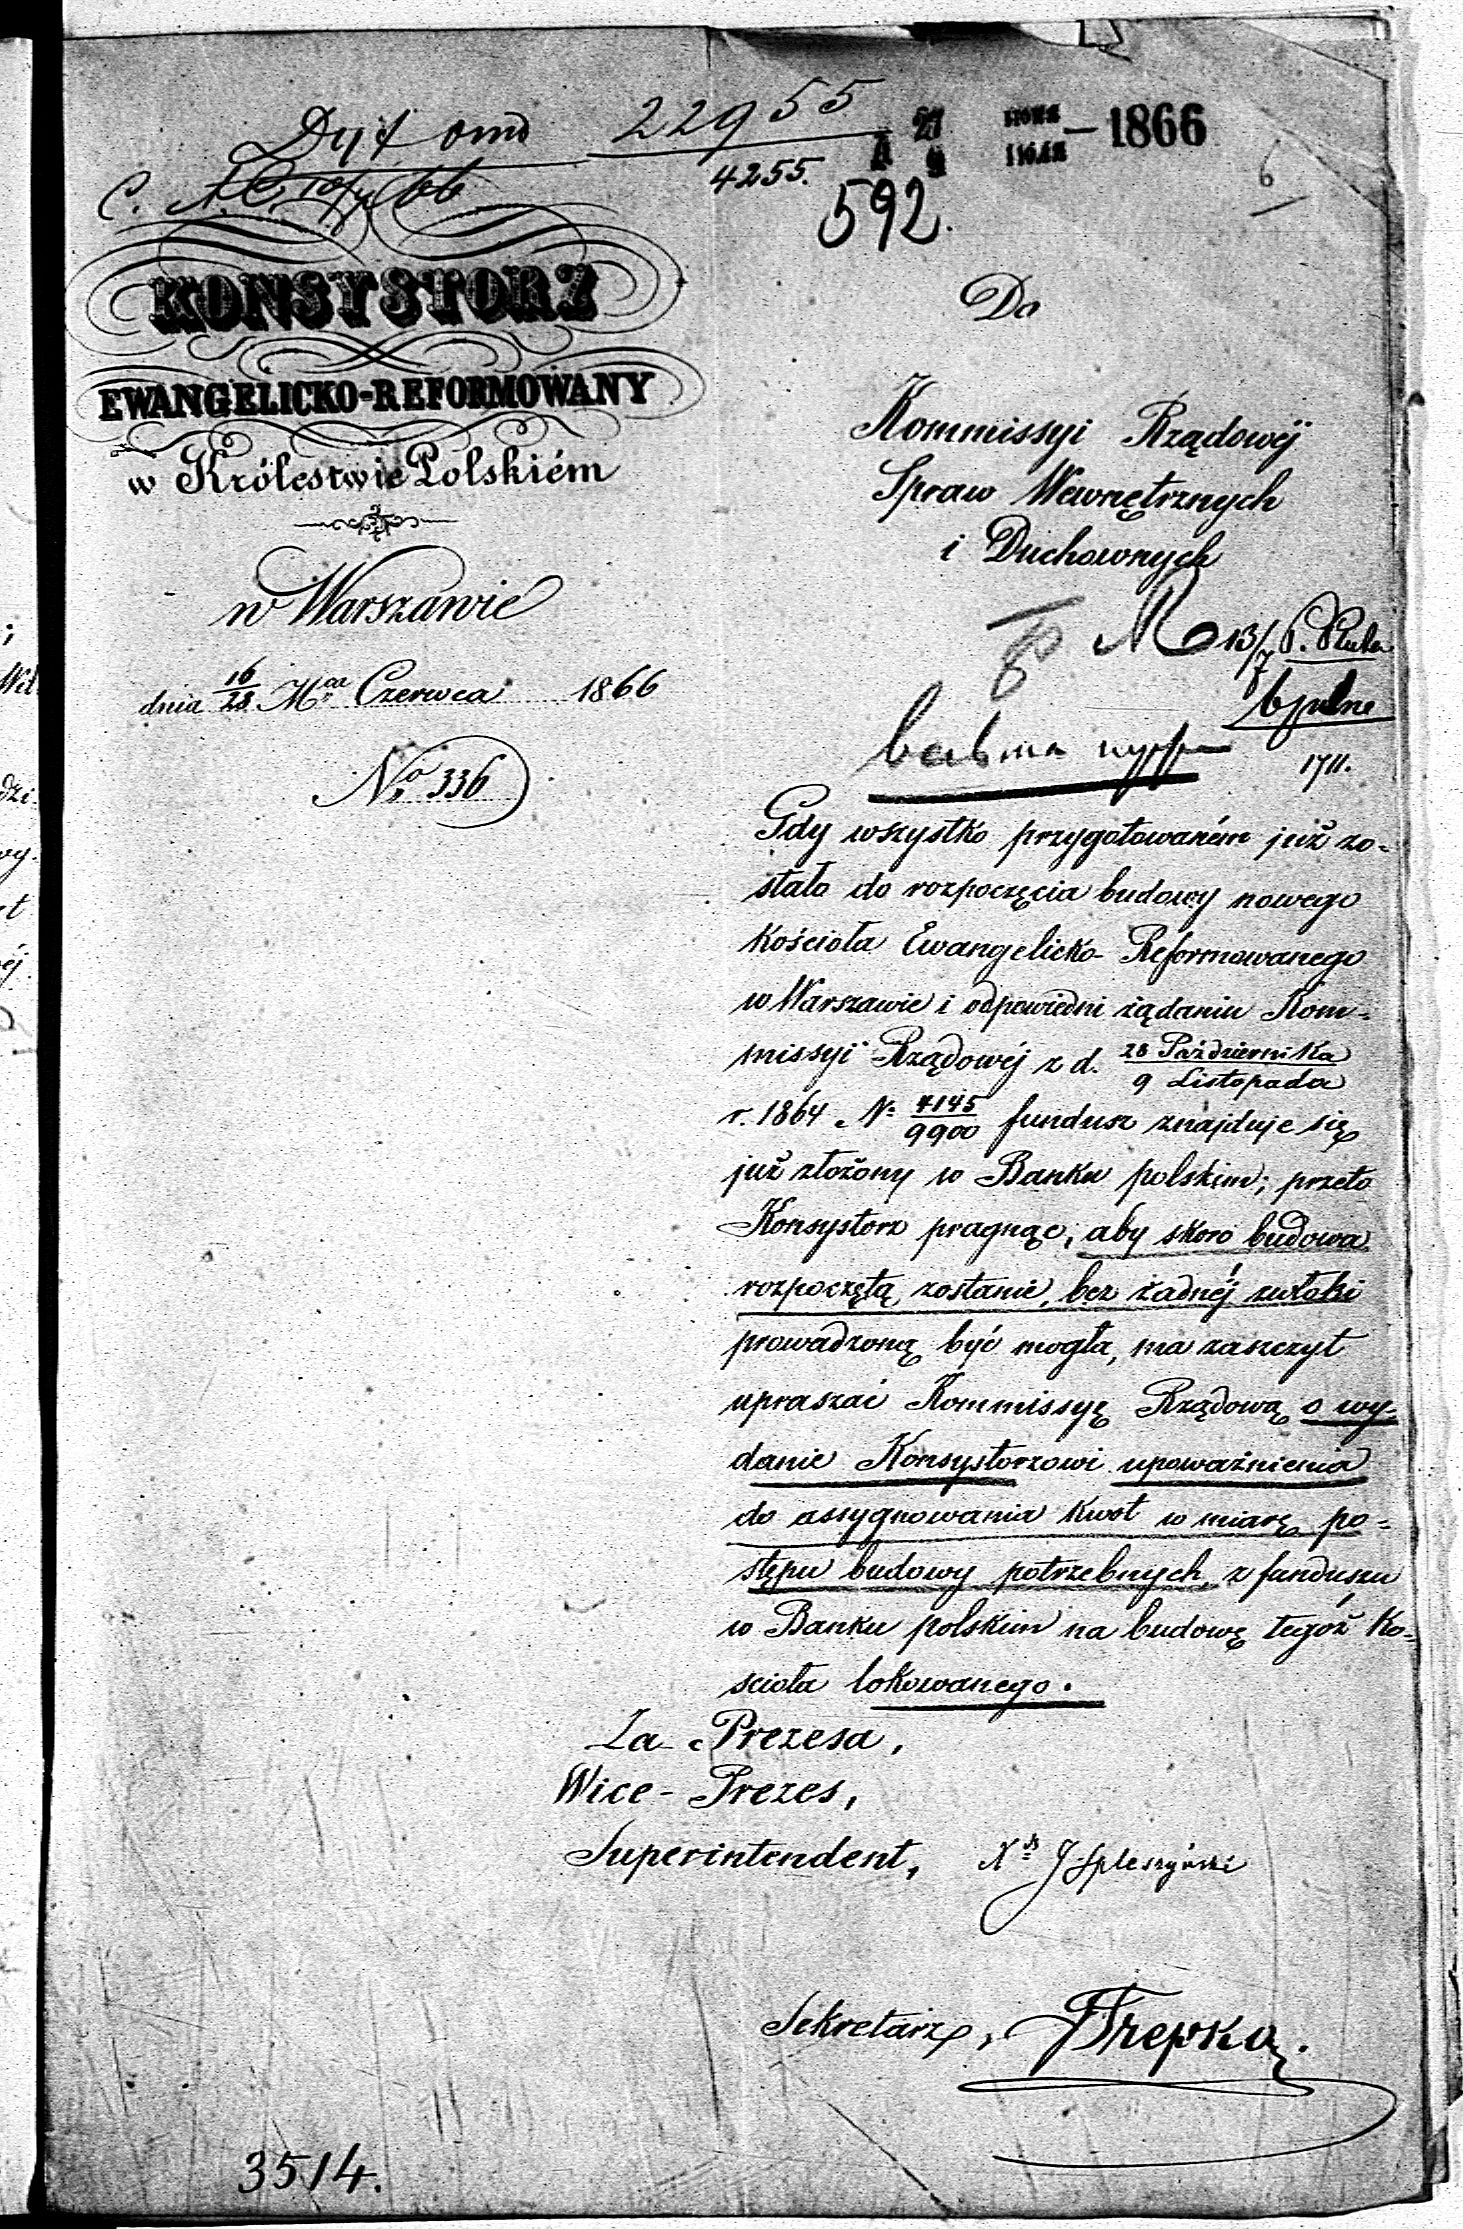 22955
4255.
1866
592.
6
KONSYSTORZ
EWANGELICKO-REFORMOWANY
w Królestwie Polskiém
w Warszawie
dnia 16/28 Mca Czerwca 1866
No 336
Do
Kommissyi Rządowéj
Spraw Wewnętrznych
i Duchownych
13/7
1711.
Gdy wszystko przygotowaném już zo-
stało do rozpoczęcia budowy nowego
kościoła Ewangelicko-Reformowanego
w Warszawie i odpowiedni żądaniu Kom-
missyi Rządowéj z d. 28 Października / 9 Listopada
r. 1864 No 4145/9900 fundusz znajduje się
już złożony w Banku polskim; przeto
Konsystorz pragnąc, aby skoro budowa
rozpoczętą zostanie, bez żadnéj zwłoki
prowadzoną być mogła, ma zaszczyt
upraszać Kommissyę Rządową o wy-
danie Konsystorzowi upoważnienia
do assygnowania kwot w miarę po-
stępu budowy potrzebnych, z funduszu
w Banku polskim na budowę tegoż Ko-
ścioła lokowanego.
Za Prezesa,
Wice-Prezes,
Superintendent, Xs J Spleszyński
Sekretarz, Trepka.
3514.